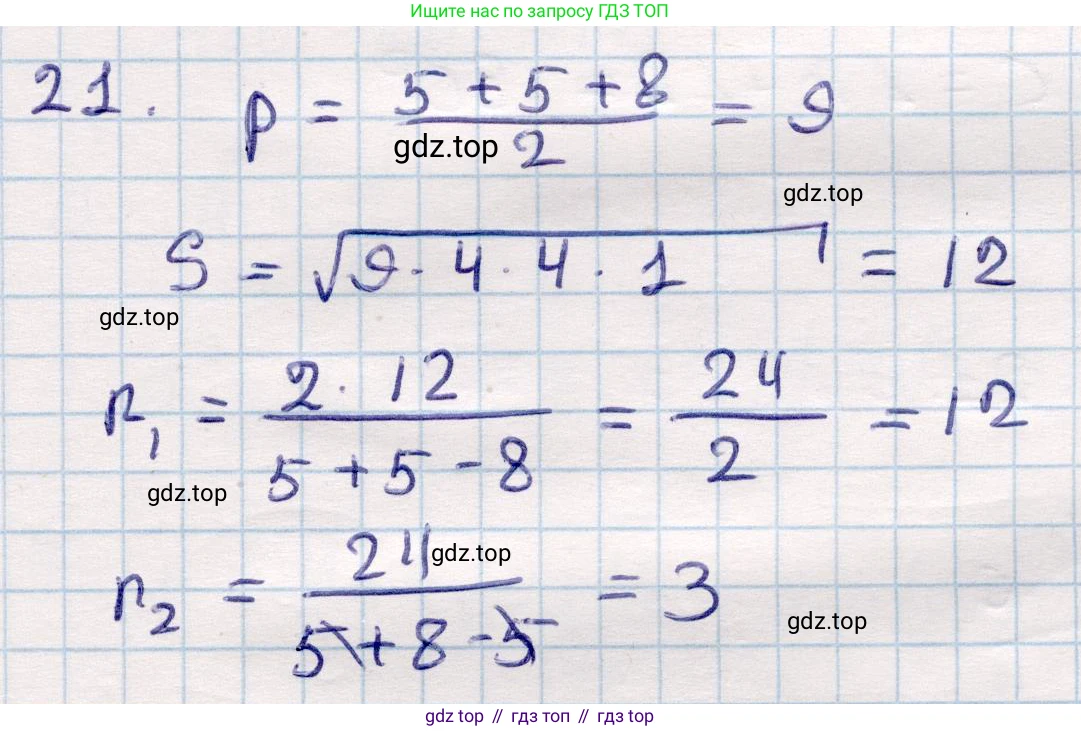 Ищите нас по запросу ГДЗ ТОП
21. p = (5 + 5 + 8)/2 = 9
gdz.top
gdz.top
S = √(9 · 4 · 4 · 1) = 12
gdz.top
r₁ = (2 · 12)/(5 + 5 - 8) = 24/2 = 12
gdz.top
r₂ = 24/(5 + 8 - 5) = 3
gdz.top
gdz.top
gdz top // гдз топ // гдз top